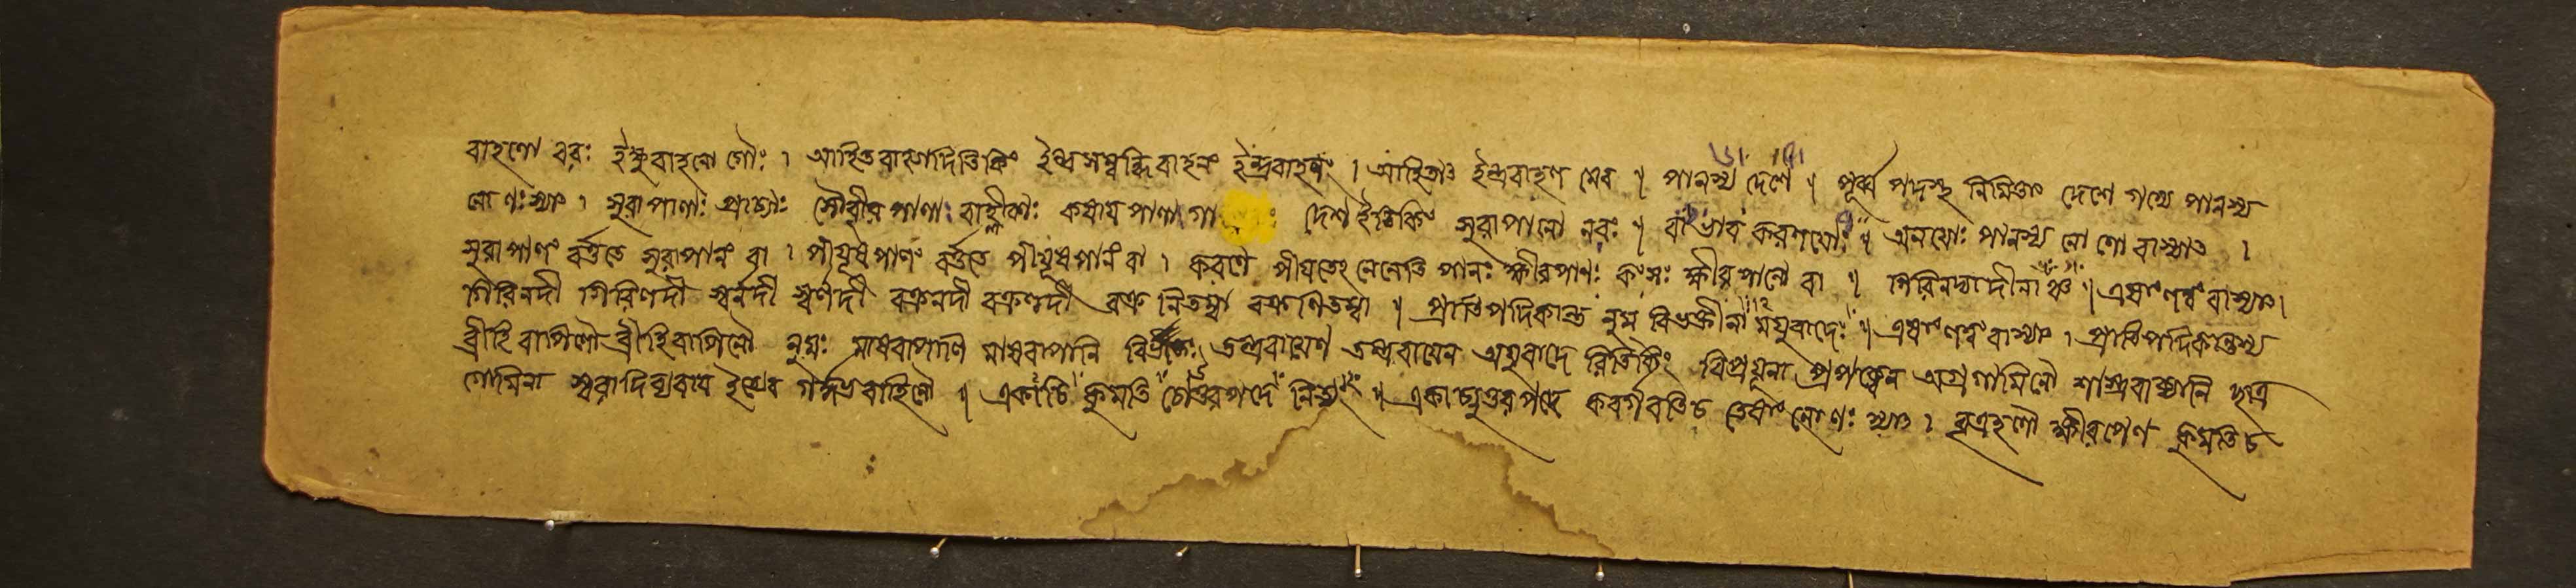 বাহণো বরঃ ইক্ষুবাহণো গৌঃ । আহিতবাহ্যাদিতিকিং ইধ্মসম্বন্ধিবাহনং ইন্দ্রবাহনং । আহিতাত্তু ইন্দ্রবাহণ মেব ॥ পানস্য দেশে ॥ পূর্ব্ব পদস্থ নিমিত্তাৎ দেশে গম্যে পানস্য
নো ণঃ স্যাৎ । সুরাপাণাঃ প্রাচ্যাঃ সৌবীর পাণা বাহ্লীকাঃ কষায় পাণা গা দেশ ইতিকিং সুরাপানো নরঃ ॥ বা ভাব করণয়োঃ ॥ অনয়োঃ পানস্য নো ণো বাস্যাৎ ।
সুরাপাণং বর্ত্ততে সুরাপানং বা । পীযূষপাণং বর্ত্ততে পীযূষপানং বা । করণে পীয়তেঽনেনেতি পানঃ ক্ষীরপাণঃ কংসঃ ক্ষীরপানো বা ॥ গিরিনদ্যাদীনাঞ্চ ॥ এষাং ণত্বং বাস্যাৎ ।
গিরিনদী গিরিণদী স্বর্নদী স্বর্ণদী বক্রনদী বক্রণদী বক্রনিতম্বা বক্রণিতম্বা ॥ প্রাতিপদিকান্ত নুম বিভক্তীনা ময়ুবাদেঃ ॥ এষাং ণত্বং বাস্যাৎ । প্রাতিপদিকান্তস্য
ব্রীহি বাপিণৌ ব্রীহিবাপিনৌ নুমঃ মাষবাপাণি মাষবাপানি বিভক্তেঃ অয়ুবাদে রিতিকিং অগ্রগামিনৌ
গোমিনা স্বরাদিব্যবায় ইত্যেব গর্দ্দভবাহিনৌ ॥ একাচি কুমতি চোত্তরপদে নিত্যং ॥ একাচ্যুত্তরপদে কবর্গবতিচ তেষাং নো ণঃ স্যাৎ । বৃত্রহণৌ ক্ষীরপেণ কুমতিচ